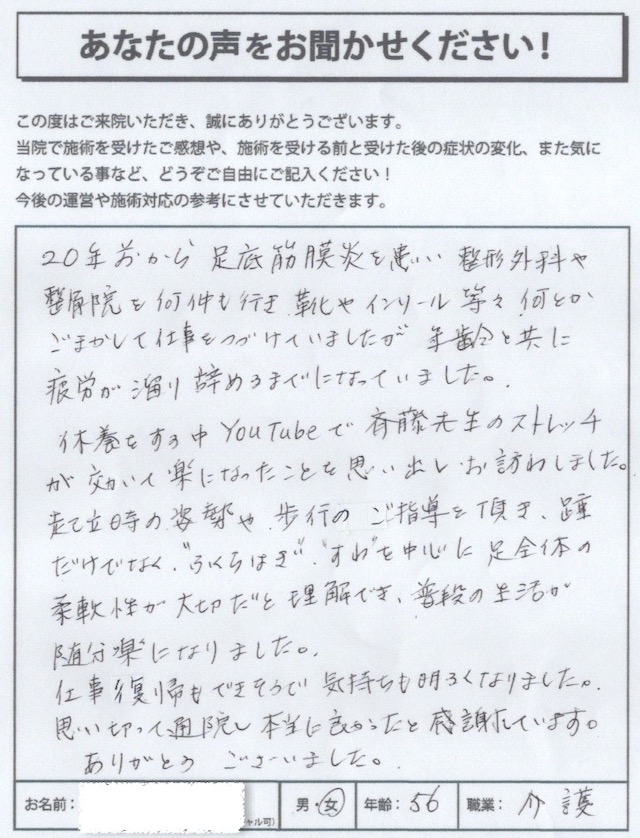 あなたの声をお聞かせください！
この度はご来院いただき、誠にありがとうございます。
当院で施術を受けたご感想や、施術を受ける前と受けた後の症状の変化、また気に
なっている事など、どうぞご自由にご記入ください！
今後の運営や施術対応の参考にさせていただきます。
20年前から 足底筋膜炎を患い 整形外科や
整骨院を何件も行き 靴やインソール等々 何とか
ごまかして仕事をつづけていましたが 年齢と共に
疲労が溜り 辞めるまでになっていました。
休養をする中 YouTubeで 斉藤先生のストレッチ
が効いて楽になったことを思い出し お訪ねしました。
起立時の姿勢や 歩行の ご指導を頂き、踵
だけでなく、"ふくらはぎ"、"すね"を中心に 足全体の
柔軟性が大切だと理解でき、普段の生活が
随分楽になりました。
仕事復帰もできそうで 気持ちも明るくなりました。
思い切って通院し 本当に良かったと感謝しています。
ありがとう ございました。
お名前： 男・女 年齢：56 職業：介護
ャル可）